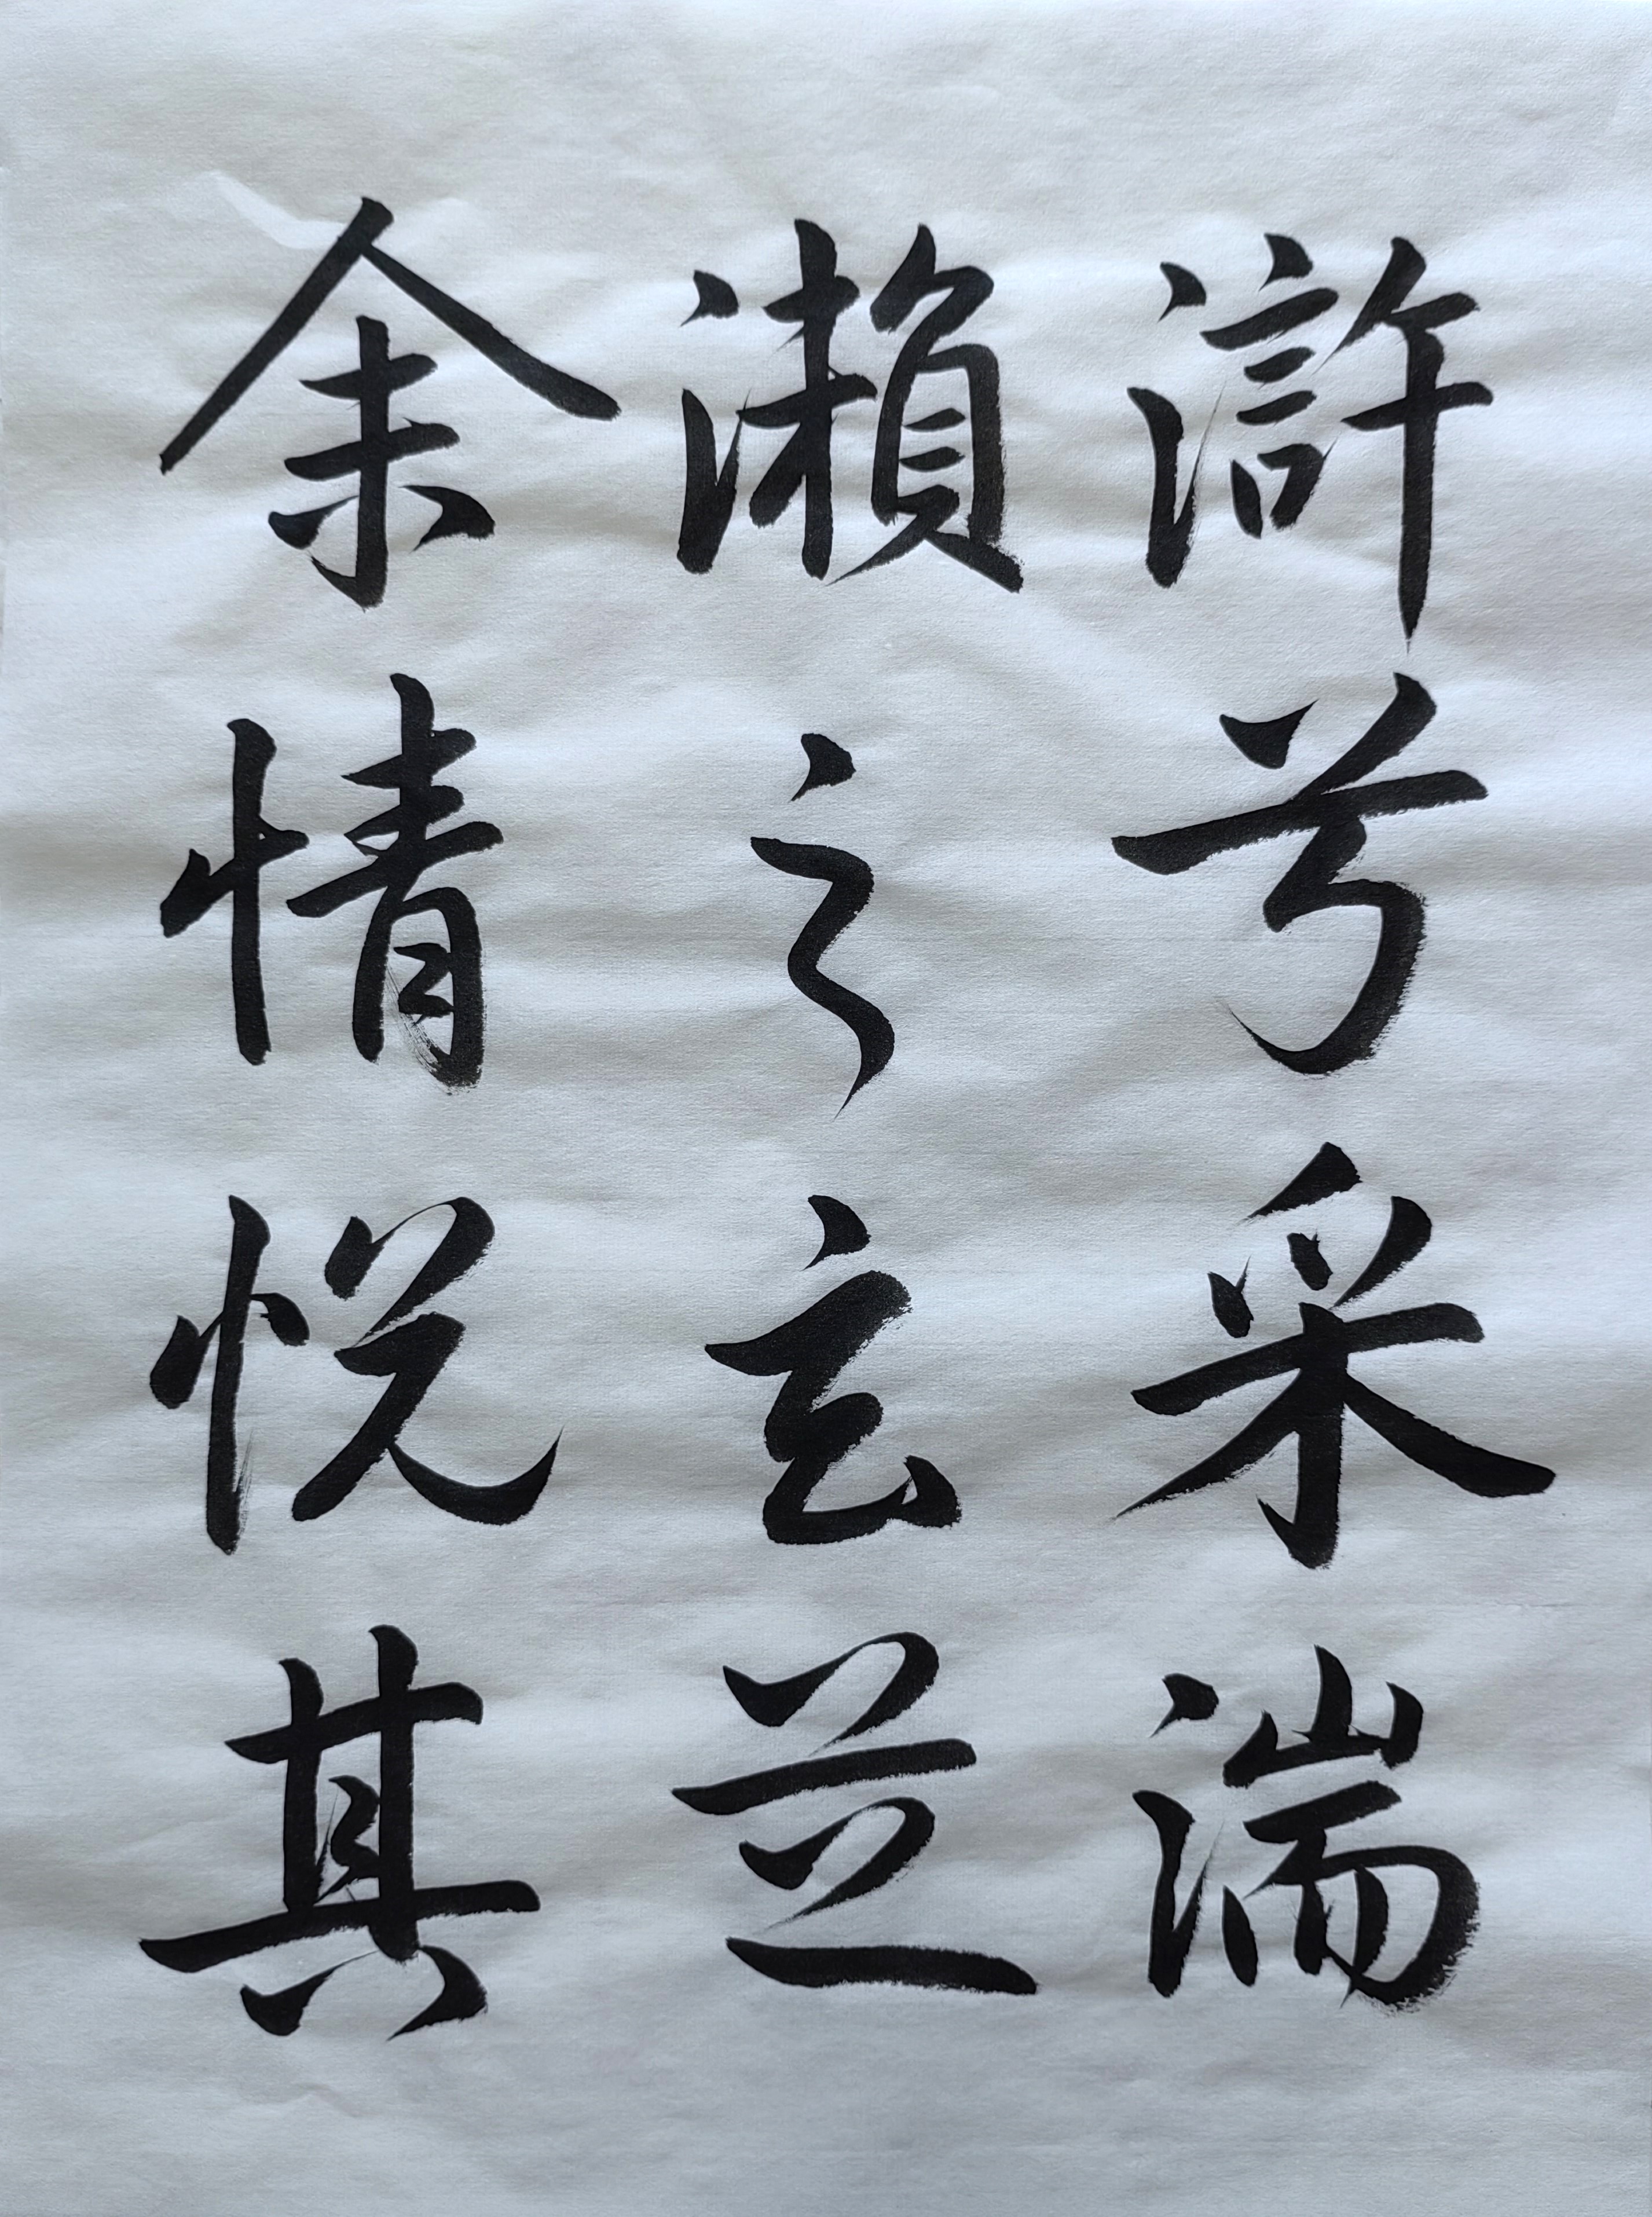 滸兮采湍
瀨之玄芝
余情悅其